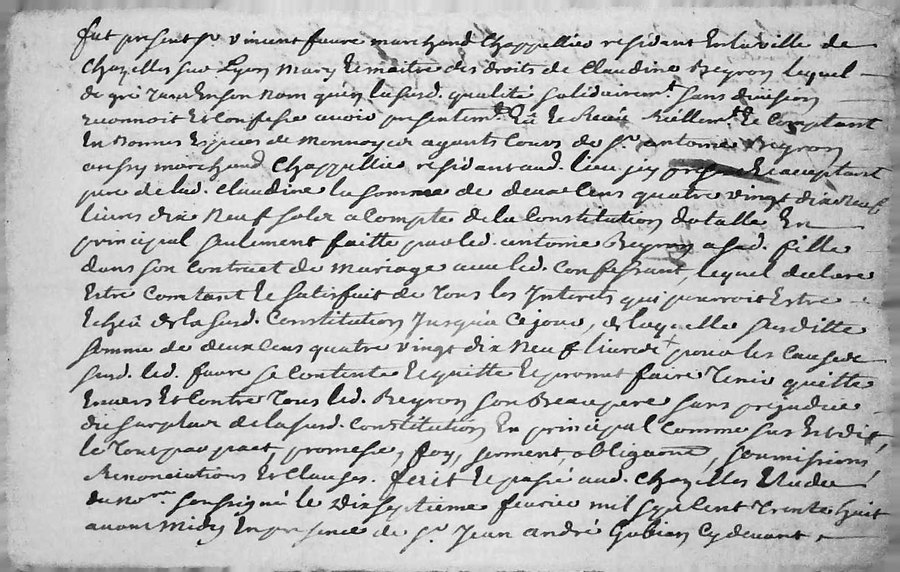 fut present sr vincent favre marchand chappellier residant En la ville de
chazelles sur Lyon mary Et maitre des droits de claudine Beyron lequel
de gré tant En son nom qu'en lasusd. qualité solidairemt. sans division
reconnoit Et confesse avoir presentemt. Eü Et Receü Reellemt. Et comptant
En Bonnes Espèces de monnoye ayants cours de sr. antoine Beyron
aussy marchand chappellier residant aud. lieu icy present Et acceptant
pere de lad. claudine la somme de deux cens quatre vingt dix Neuf
livres dix Neuf sols acompte de la Constitution dotalle En
principal seulement faitte par led. antoine Beyron a sad. fille
dans son contract de mariage avec led. confessant, lequel declare
Estre Comtant Et satisfait de tous les Interets qui pourroit Estre
Echeü de lasusd. Constitution Jusqu'a Ce jour, de laquelle susditte
somme de deux cens quatre vingt dix Neuf livres + pour les causes
susd. led. favre se contente Et quitte Et promet faire tenir quitte
Envers Et contre tous led. Beyron son Beaupere sans prejudice
du surplus de lasusd. constitution En principal comme sus Est dit,
le tout par pact, promesse, foy, serment, obligaons, soumissions,
Renonciations Et clauses. fait Et passé aud. chazelles Etude
du Nore. soussigné le dix septieme fevrier mil sept cent trente huit
avant midy En presence de sr. Jean andré Gubian cy devant